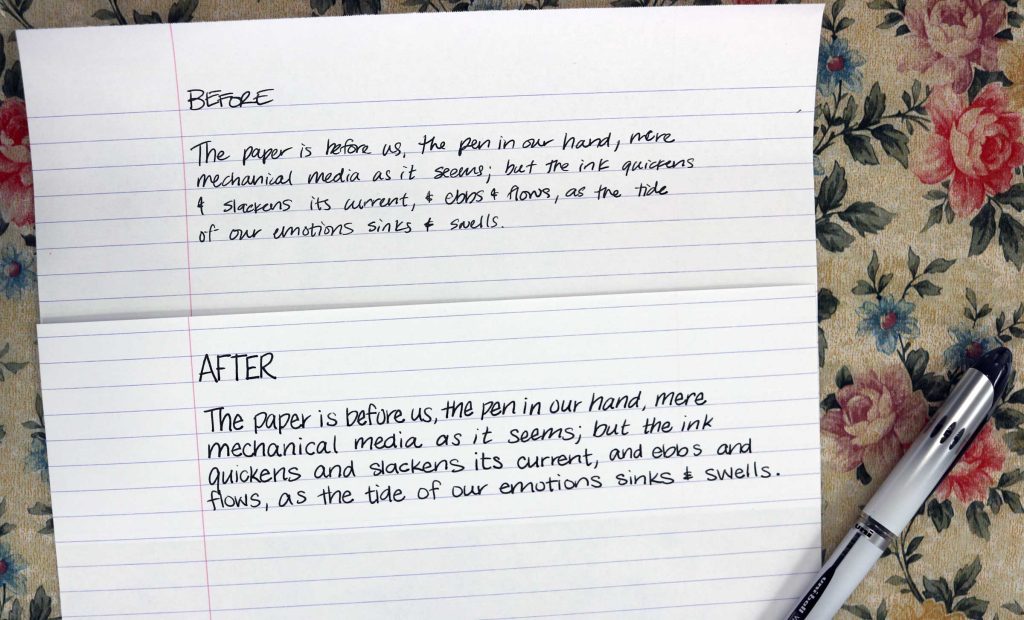 BEFORE
The paper is before us, the pen in our hand, mere
mechanical media as it seems; but the ink quickens
& slackens its current, & ebbs & flows, as the tide
of our emotions sinks & swells.
AFTER
The paper is before us, the pen in our hand, mere
mechanical media as it seems; but the ink
quickens and slackens its current, and ebbs and
flows, as the tide of our emotions sinks & swells.
uni
uni-ball